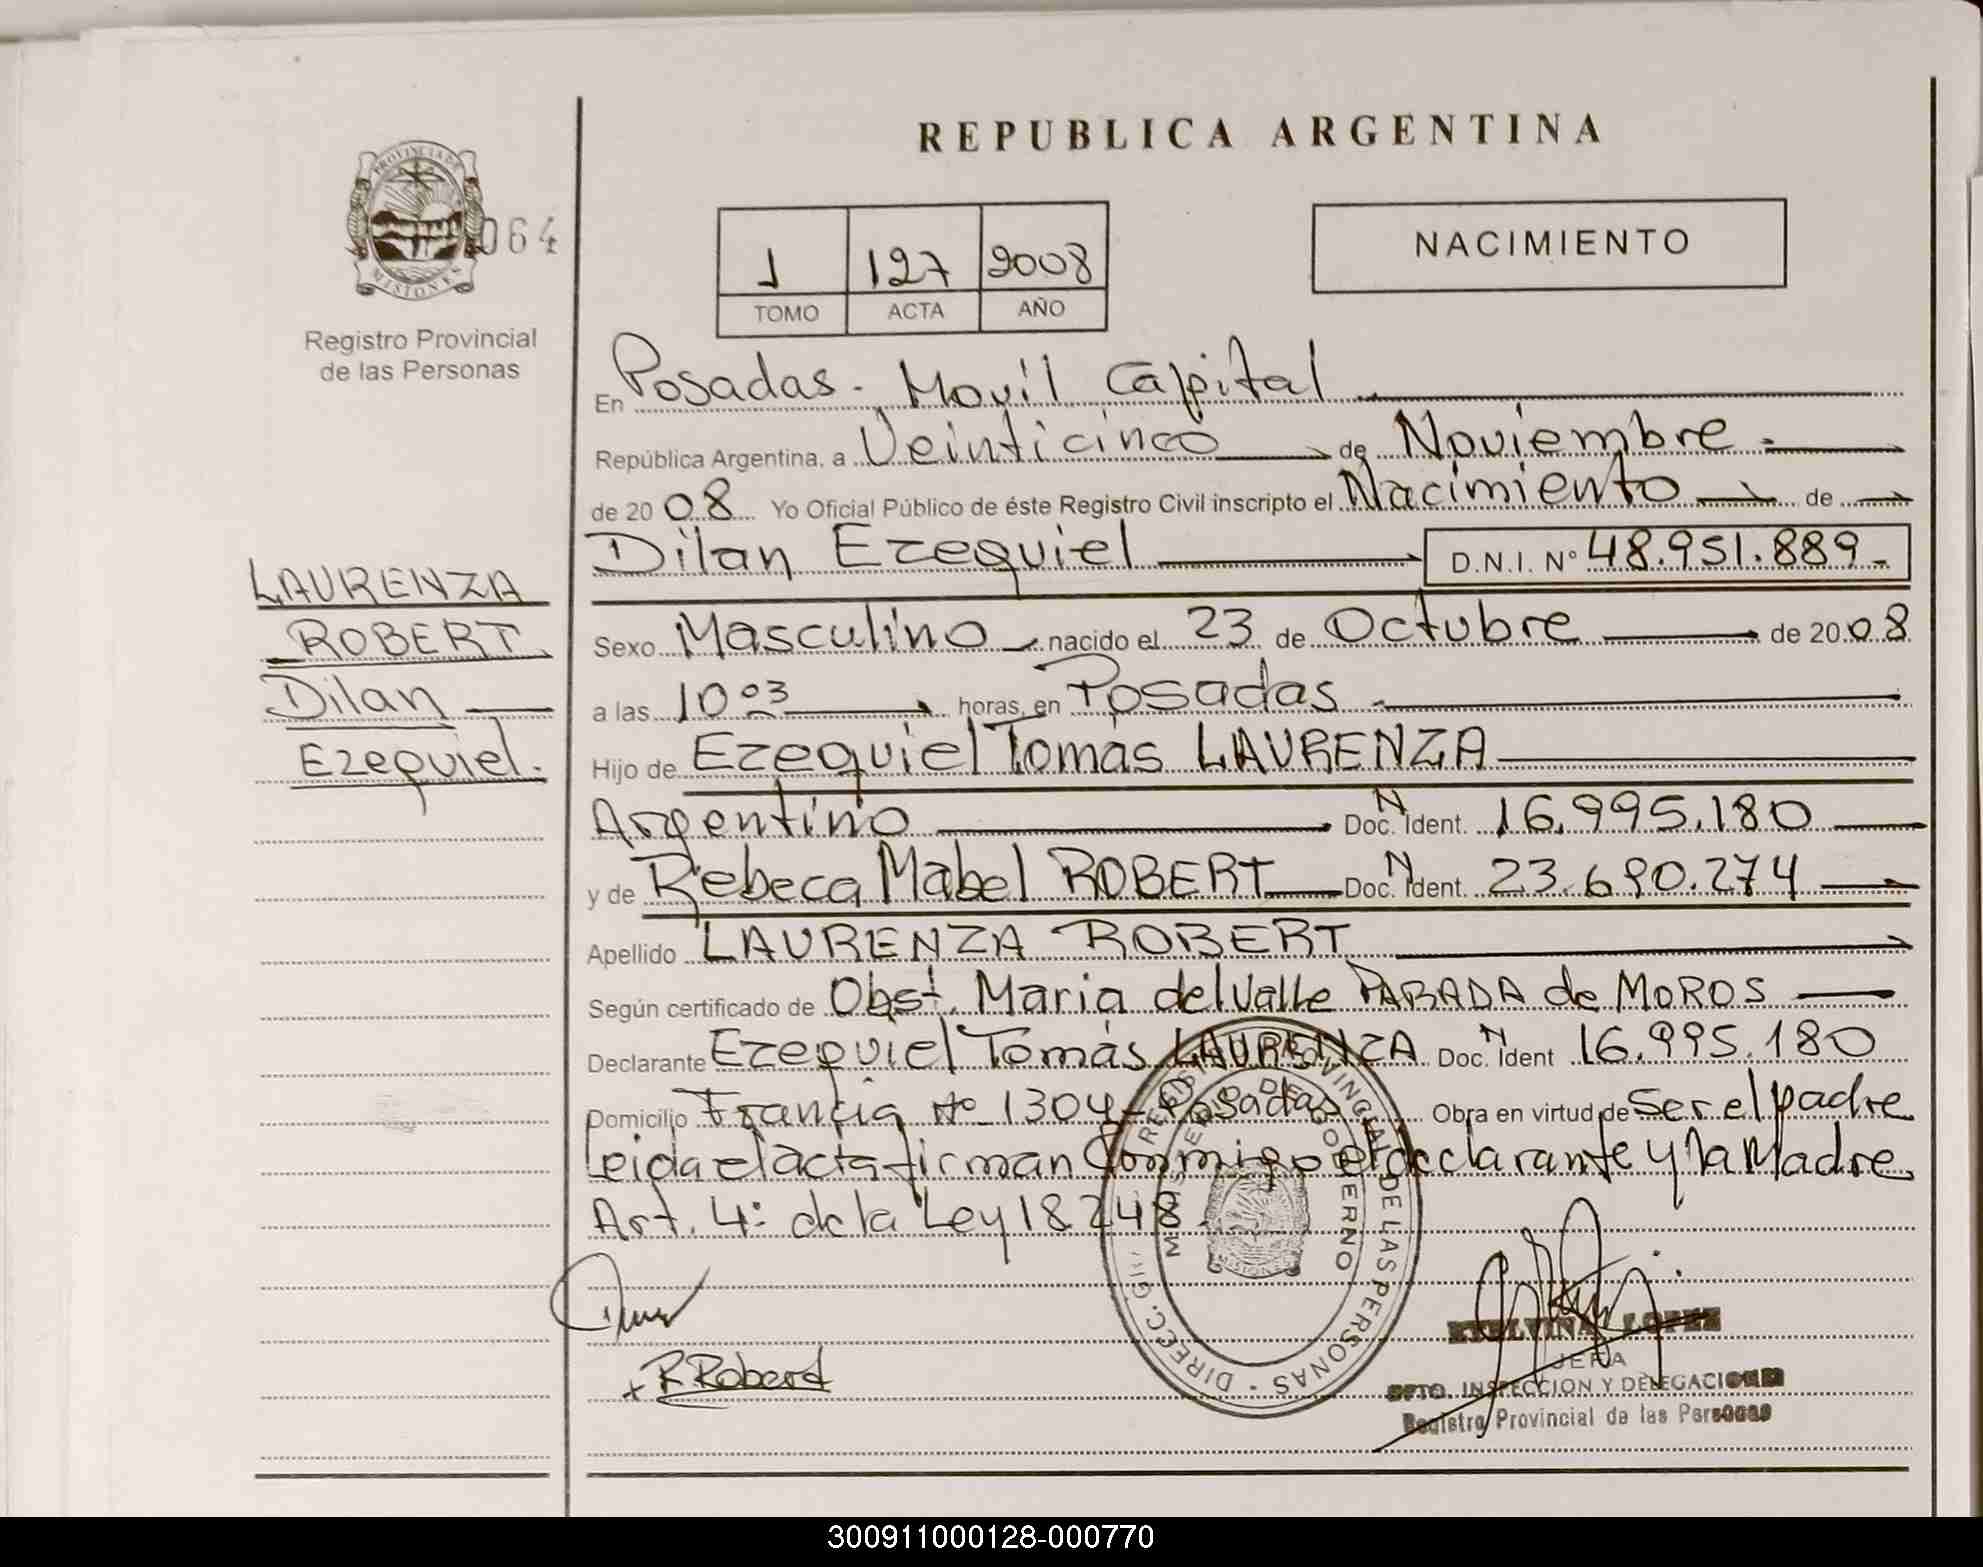 REPUBLICA ARGENTINA
PROVINCIA DE
MISIONES
064
Registro Provincial
de las Personas
1 127 2008
TOMO ACTA AÑO
NACIMIENTO
En Posadas - Movil Capital
República Argentina, a Veinticinco de Noviembre
de 2008 Yo Oficial Público de éste Registro Civil inscripto el Nacimiento de
Dilan Ezequiel D.N.I. Nº 48.951.889
LAURENZA
ROBERT
Dilan
Ezequiel.
Sexo Masculino nacido el 23 de Octubre de 2008
a las 10 03 horas, en Posadas
Hijo de Ezequiel Tomás LAURENZA
Argentino Doc. N Ident. 16.995.180
y de Rebeca Mabel ROBERT Doc. N Ident. 23.690.274
Apellido LAURENZA ROBERT
Según certificado de Obst. Maria del Valle PARADA de MOROS
Declarante Ezequiel Tomás LAURENZA Doc. N Ident 16.995.180
Domicilio Francia Nº 1304 - Posadas Obra en virtud de Ser el padre
Leida el acta firman Conmigo el declarante y la Madre
Art. 4º de la Ley 18248
DIREC. REGISTRO PROVINCIAL DE LAS PERSONAS
MINISTERIO DE GOBIERNO
MISIONES
R Robert
ETELVINA LOPEZ
JEFA
DPTO. INSPECCION Y DELEGACIONES
Registro Provincial de las Personas
300911000128-000770